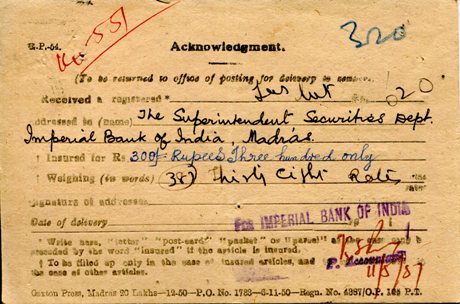 R.P.-54.
No 551
320
Acknowledgment.
(To be returned to office of posting for delivery to sender.)
Received a registered* Ins let No. 020
addressed to (name) The Superintendent Securities Dept.
Imperial Bank of India, Madras.
† Insured for Rs. 300/- Rupees Three hundred only
† Weighing (in words) (38) Thirty Eight
Signature of addressee
Date of delivery
For IMPERIAL BANK OF INDIA
* Write here, "letter" "post-card," "packet" or "parcel"
preceded by the word "insured" if the article is insured.
† To be filled up only in the case of insured articles, and
the case of other articles.
Accountant
11/5/51
Caxton Press, Madras 20 Lakhs—12-50—P.O. No. 1783—6-11-50—Regn. No. 4387/O.P. 108 P.T.